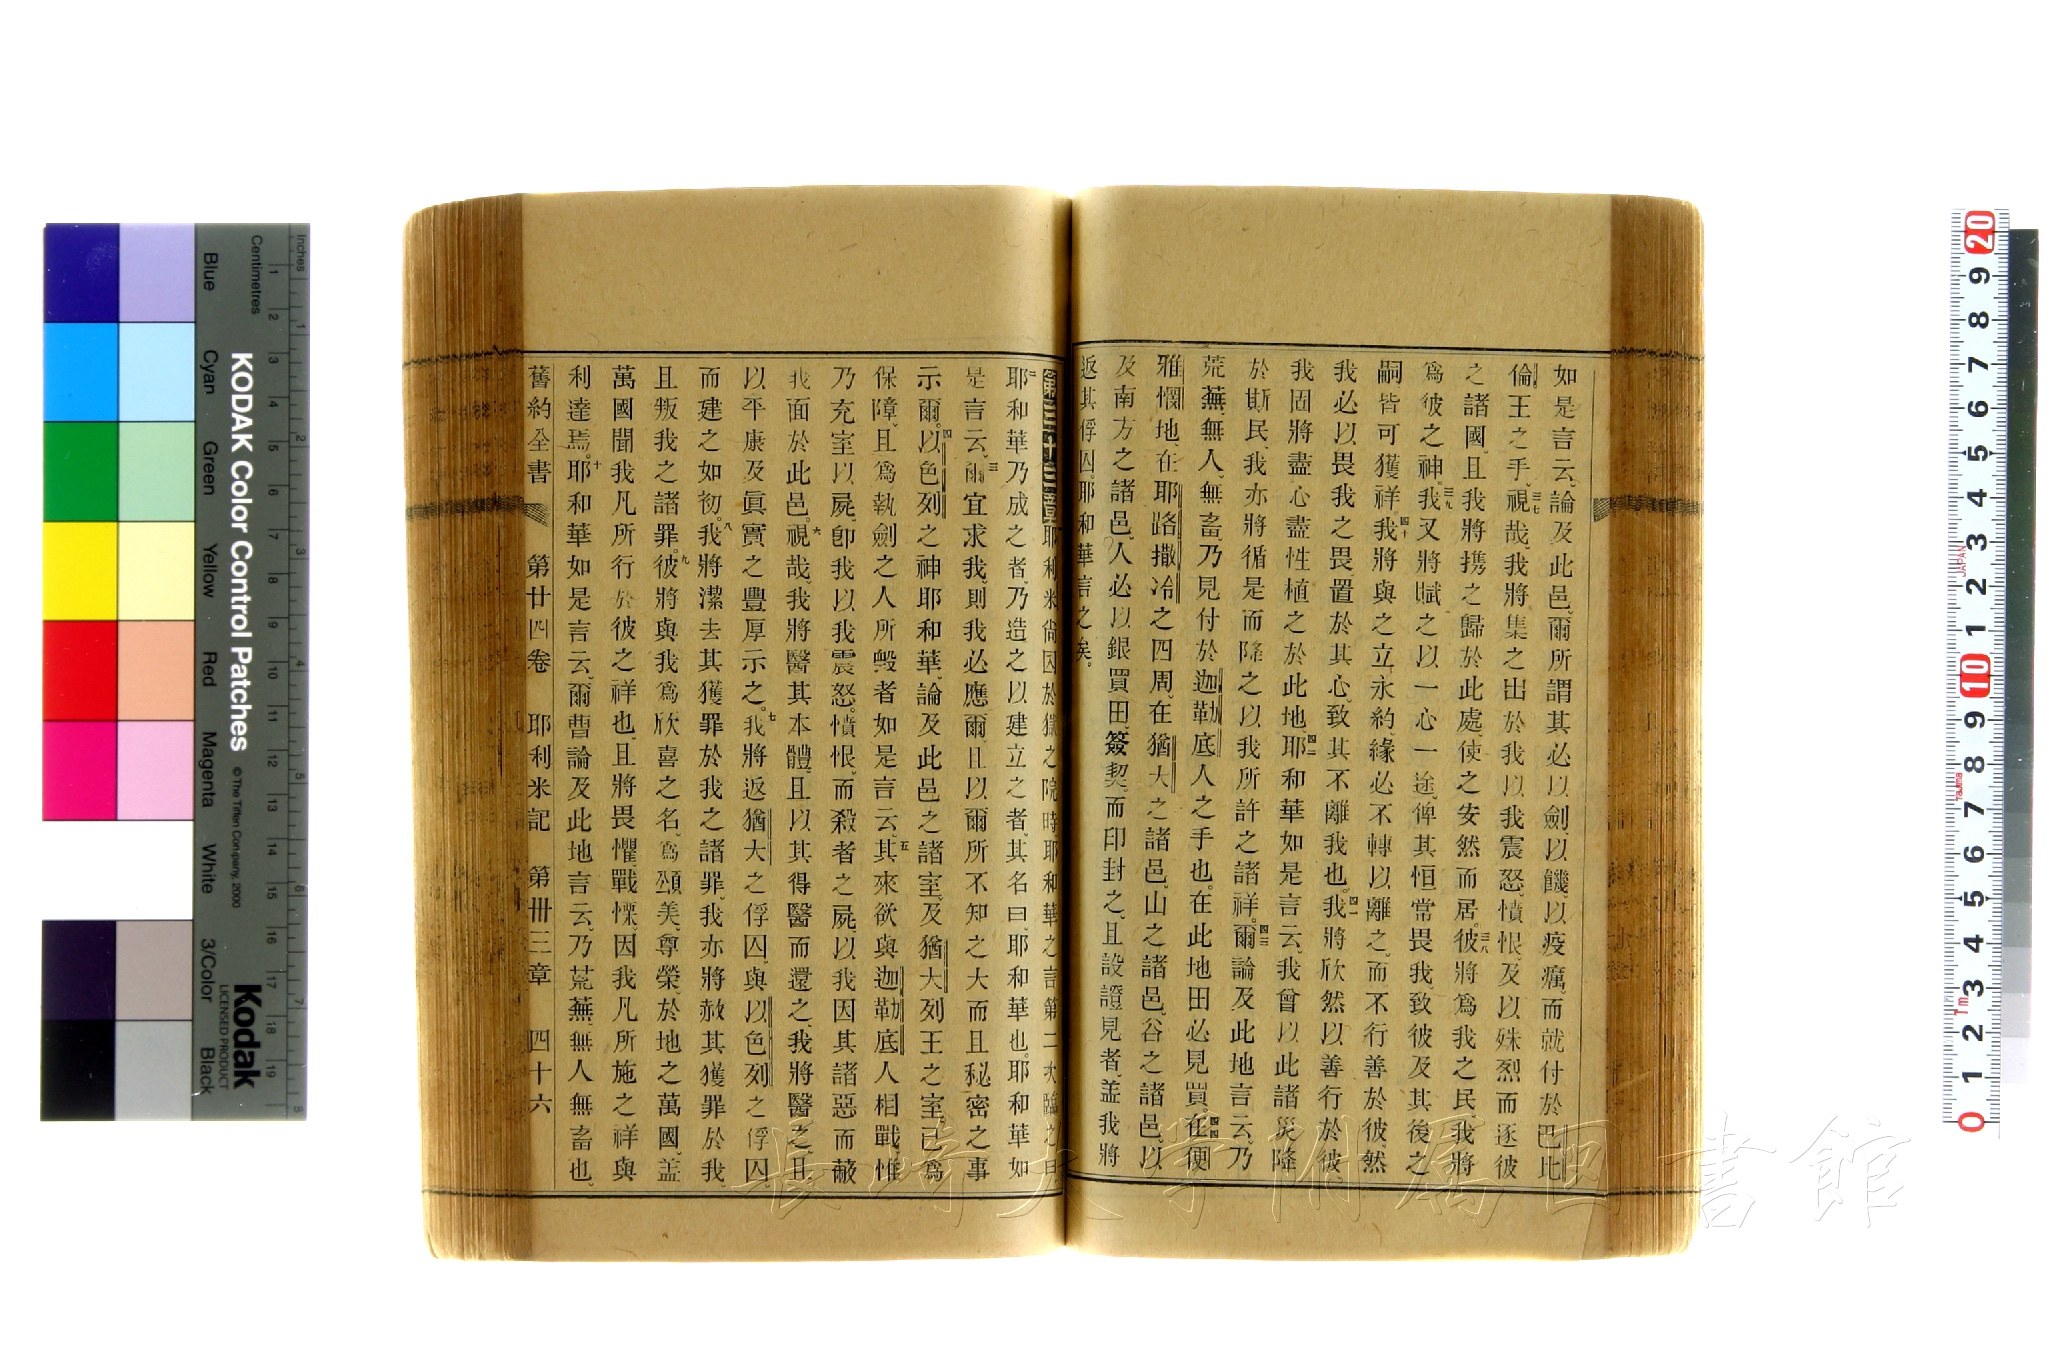 如是言云、論及此邑、爾所謂其必以劍、以饑、以疫癘、而就付於巴比
倫王之手。三七視哉、我將集之出於我以我震怒、憤恨、及以殊烈而逐彼
之諸國、且我將携之歸於此處、使之安然而居。三八彼將爲我之民、我將
爲彼之神。三九我又將賦之以一心一途、俾其恒常畏我、致彼及其後之
嗣皆可獲祥。四十我將與之立永約、緣必不轉以離之、而不行善於彼、然
我必以畏我之畏置於其心、致其不離我也。四一我將欣然以善行於彼、
我固將盡心盡性植之於此地。四二耶和華如是言云、我曾以此諸災降
於斯民、我亦將循是而降之以我所許之諸祥。四三爾論及此地言云、乃
荒蕪、無人、無畜、乃見付於迦勒底人之手也。在此地田必見買。四四在便
雅憫地、在耶路撒冷之四周、在猶大之諸邑、山之諸邑、谷之諸邑、以
及南方之諸邑、人必以銀買田、簽契、而印封之、且設證見者、盖我將
返其俘囚、耶和華言之矣。
第三十三章 耶利米尚囚於獄之院時、耶和華之言第二次臨之曰、
二耶和華乃成之者、乃造之以建立之者、其名曰耶和華也。耶和華如
是言云、三爾宜求我、則我必應爾、且以爾所不知之大而且秘密之事
示爾。四以色列之神耶和華、論及此邑之諸室、及猶大列王之室、已爲
保障、且爲執劍之人所毀者如是言云、五其來欲與迦勒底人相戰、惟
乃充室以屍、卽我以我震怒、憤恨、而殺者之屍、以我因其諸惡而蔽
我面於此邑。六視哉、我將醫其本體、且以其得醫而還之、我將醫之、且
以平康及眞實之豐厚示之。七我將返猶大之俘囚、與以色列之俘囚、
而建之如初。八我將潔去其獲罪於我之諸罪、我亦將赦其獲罪於我、
且叛我之諸罪。九彼將與我爲欣喜之名、爲頌美、尊榮、於地之萬國、盖
萬國聞我凡所行於彼之祥也、且將畏懼、戰慄、因我凡所施之祥與
利達焉。十耶和華如是言云、爾曹論及此地言云、乃荒蕪、無人無畜也、
舊約全書 第廿四卷 耶利米記 第卅三章 四十六
長崎大学附属図書館
KODAK Color Control Patches
© The Tiffen Company, 2000
Kodak
LICENSED PRODUCT
Inches
Centimetres
Blue Cyan Green Yellow Red Magenta White 3/Color Black
1 2 3 4 5 6 7 8 9 10 11 12 13 14 15 16 17 18 19
20 9 8 7 6 5 4 3 2 1 10 9 8 7 6 5 4 3 2 1 0
JAPAN
Tajima